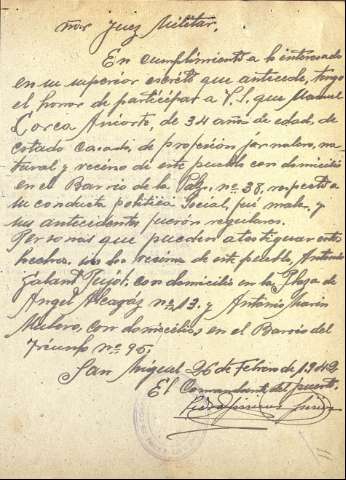 Juez Militar.
En cumplimiento a lo interesado
en su superior escrito que antecede, tengo
el honor de participar a V.S. que Manuel
Lorca Aniorte, de 34 años de edad, de
estado casado, de profesion jornalero, na-
tural y vecino de este pueblo con domicilio
en el Barrio de la Paz, nº 38, respecto a
su conducta politica social, fué mala, y
sus antecedentes fueron regulares.
Personas que pueden atestiguar estos
hechos, los vecinos de este pueblo, Antonio
Galant Pujol, con domicilio en la Plaza de
Angel Alcaraz nº 13. y Antonio Marin
con domicilio en el Barrio del
Triunfo nº 95.
San Miguel 26 de Febrero de 1942
El Comandante del puesto.